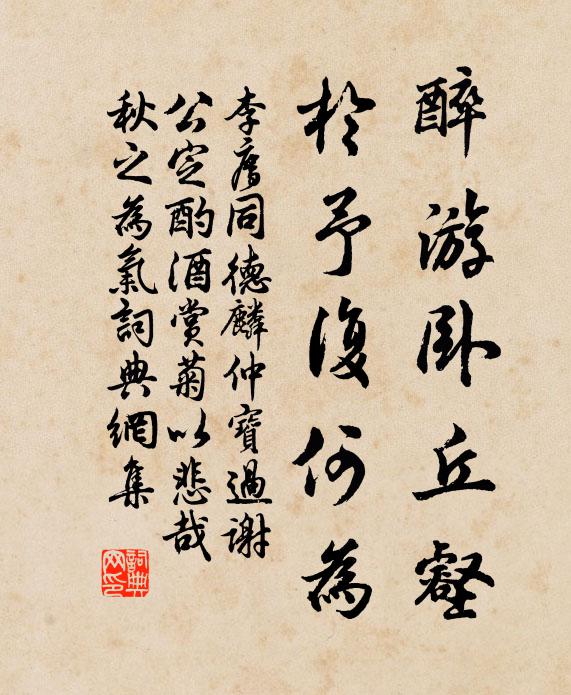 醉游卧丘壑
於予復何為
李廌同德麟仲寶過謝
公定酌酒賞菊以悲哉
秋之為氣詞典網集
詞典网印